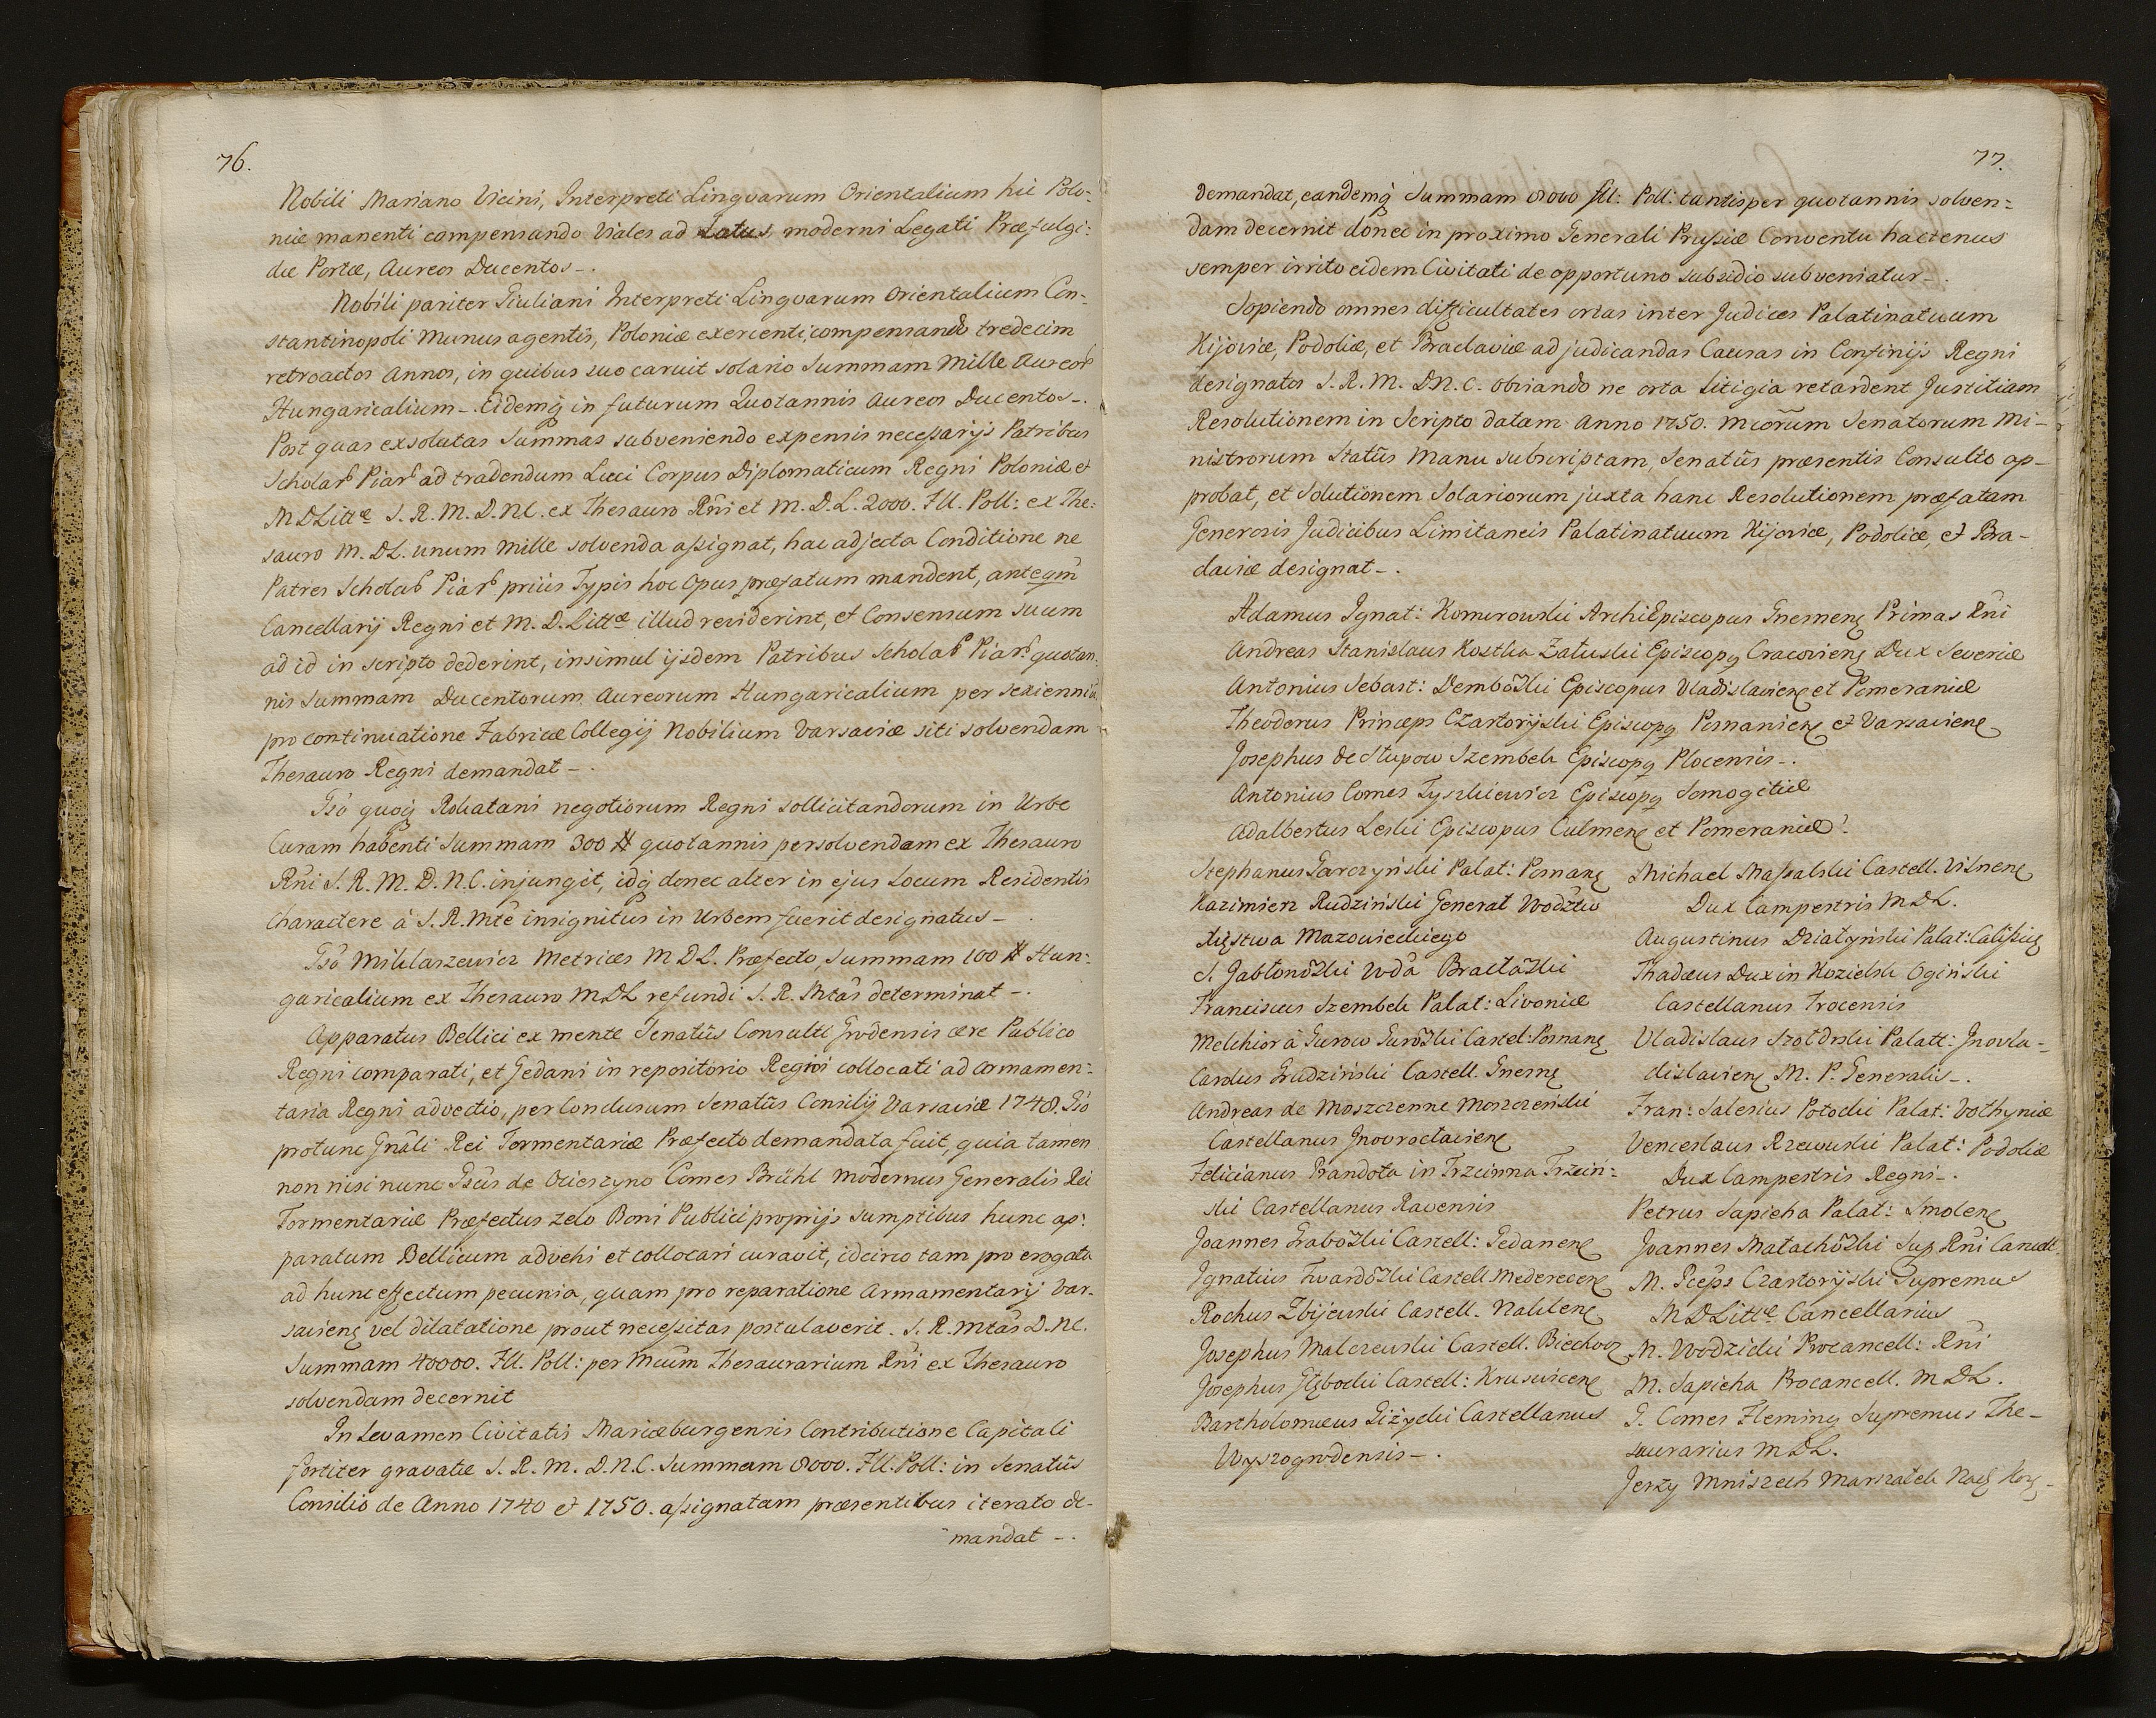 76.
Nobili Mariano Vicini, Interpreti Lingvarum Orientalium hic Polo-
niæ manenti compensando Viales ad Latus moderni Legati Præfulgi-
dæ Portæ, Aureos Ducentos-.
Nobili pariter Giuliani Interpreti Lingvarum Orientalium Con-
stantinopoli Munus agentis, Poloniæ exercenti, compensando tredecim
retroactos Annos, in quibus suo caruit solario Summam Mille Aureor
Hungaricalium-. Eidemq in futurum Quotannis Aureos Ducentos-.
Post quas exsolutas Summas subveniendo expensis necessarijs Patribus
Scholar Piar ad tradendum Luci Corpus Diplomaticum Regni Poloniæ et
M D Littæ S. R. M. D. N. C. ex Thesauro Rñi et M. D. L. 2000. Fll. Poll: ex The-
sauro M. DL. unum Mille solvenda assignat, hac adjecta Conditione ne
Patres Scholar Piar priùs Typis hoc Opus præfatum mandent, anteqm
Cancellarij Regni et M. D. Littæ illud reviderint, et Consensum suum
ad id in scripto dederint, insimul ijsdem Patribus Scholar Piar quotan-
nis Summam Ducentorum Aureorum Hungaricalium per sexenniũ
pro continuatione Fabricæ Collegij Nobilium Varsaviæ siti solvendam
Thesauro Regni demandat-.
Gso quoq Rokatani negotiorum Regni sollicitandorum in Urbe
Curam habenti Summam 300 # quotannis persolvendam ex Thesauro
Rñi S. R. M. D. N. C. injungit, idq donec alter in ejus Locum Residentis
Charactere à S. R. Mtê insignitus in Urbem fuerit designatus-.
Gsõ Mikłaszewicz Metrices M D L. Præfecto, Summam 100 # Hun-
garicalium ex Thesauro M D L refundi S. R. Mtas determinat-.
Apparatus Bellici ex mente Senatûs Consulti Grodensis ære Publico
Regni comparati, et Gedani in repositorio Regni collocati ad Armamen-
taria Regni advectio, per Conclusum Senatûs Consilij Varsaviæ 1748. Gso
protunc Gnâli Rei Tormentariæ Præfecto demandata fuit, quia tamen
non nisi nunc Gsûs de Ocieszyno Comes Brühl Modernus Generalis Rei
Tormentariæ Præfectus zelo Boni Publici proprijs sumptibus hunc ap-
paratum Bellicum advehi et collocari curavit, idcirco tam pro erogata
ad hunc effectum pecunia, quam pro reparatione Armamentarij Var-
saviens vel dilatatione prout necessitas postulaverit. S. R. Mtas D. N. C.
Summam 40000. Fll. Poll: per Mcum Thesaurarium Rñi ex Thesauro
solvendam decernit
In Levamen Civitatis Mariæburgensis Contributione Capitali
fortiter gravatæ S. R. M. D. N. C. Summam 8000. Fll. Poll: in Senatûs
Consilio de Anno 1740 et 1750. assignatam præsentibus iterato de-
mandat-.
77.
demandat, eandemq Summam 8000 fll: Poll: tantisper quotannis solven-
dam decernit donec in proximo Generali Prussiæ Conventu hactenus
semper irrito eidem Civitati de opportuno subsidio subveniatur-.
Sopiendo omnes difficultates ortas inter Judices Palatinatuum
Kijoviæ, Podoliæ, et Braclaviæ ad judicandas Causas in Confinijs Regni
designatos S. R. M. D N. C. obviando ne orta litigia retardent Justitiam
Resolutionem in Scripto datam Anno 1750. Mcorum Senatorum Mi-
nistrorum Statûs Manu subscriptam, Senatûs præsentis Consulto ap-
probat, et Solutionem Solariorum juxta hanc Resolutionem præfatam
Generosis Judicibus Limitaneis Palatinatuum Kijoviæ, Podoliæ, et Bra-
claviæ designat-.
Adamus Ignat: Komorowski ArchiEpiscopus Gnesnens Primas Rñi
Andreas Stanislaus Kostka Załuski Episcopq Cracoviens Dux Severiæ
Antonius Sebast: Dembowski Episcopus Vladislaviens et Pomeraniæ
Theodorus Princeps Czartoryiski Episcopq Posnaniens et Varsaviens
Josephus de Słupow Szembek Episcopq Plocensis-.
Antonius Comes Tyszkiewicz Episcopq Samogitiæ
Adalbertus Leski Episcopus Culmens et Pomeraniæ.
Stephanus Garczyński Palat: Posnans
Kazimierz Rudziński Generał Wodztw
Xięstwa Mazowieckiego
S. Jabłonowski Wda Bracławski
Franciscus Szembek Palat: Livoniæ
Melchior à Gurow Gurowski Castel: Posnans
Carolus Grudziński Castell. Gnesns
Andreas de Moszczenne Moszczeński
Castellanus Jnowrocławiens
Felicianus Grandota in Trzcinna Trzciń-
ski Castellanus Ravensis
Joannes Grabowski Castell: Gedanens
Ignatius Twardowski Castell Mederecens
Rochus Zbijewski Castell. Naklens
Josephus Malczewski Castell. Biechov
Josephus Głębocki Castell: Krusvicens
Bartholomæus Giżycki Castellanus
Wyszogrodensis-.
Michael Massalski Castell. Vilnens
Dux Campestris M D L.
Augustinus Działyński Palat: Calissiens
Thadæus Dux in Kozielsk Ogiński
Castellanus Trocensis
Vladislaus Szołdrski Palatt: Jnovla-
dislaviens M. P. Generalis-.
Fran: Salesius Potocki Palat: Vołhyniæ
Venceslaus Rzewuski Palat: Podoliæ
Dux Campestris Regni-.
Petrus Sapieha Palat: Smolens
Joannes Małachowski Sup Rñi Cancell.
M. Pceps Czartoryiski Supremus
M D Littæ Cancellarius
M. Wodzicki Procancell: Rñi
M. Sapieha Procancell. M D L.
G. Comes Fleming Supremus The-
saurarius M D L.
Jerzy Mniszech Marszałek Nad Kor-